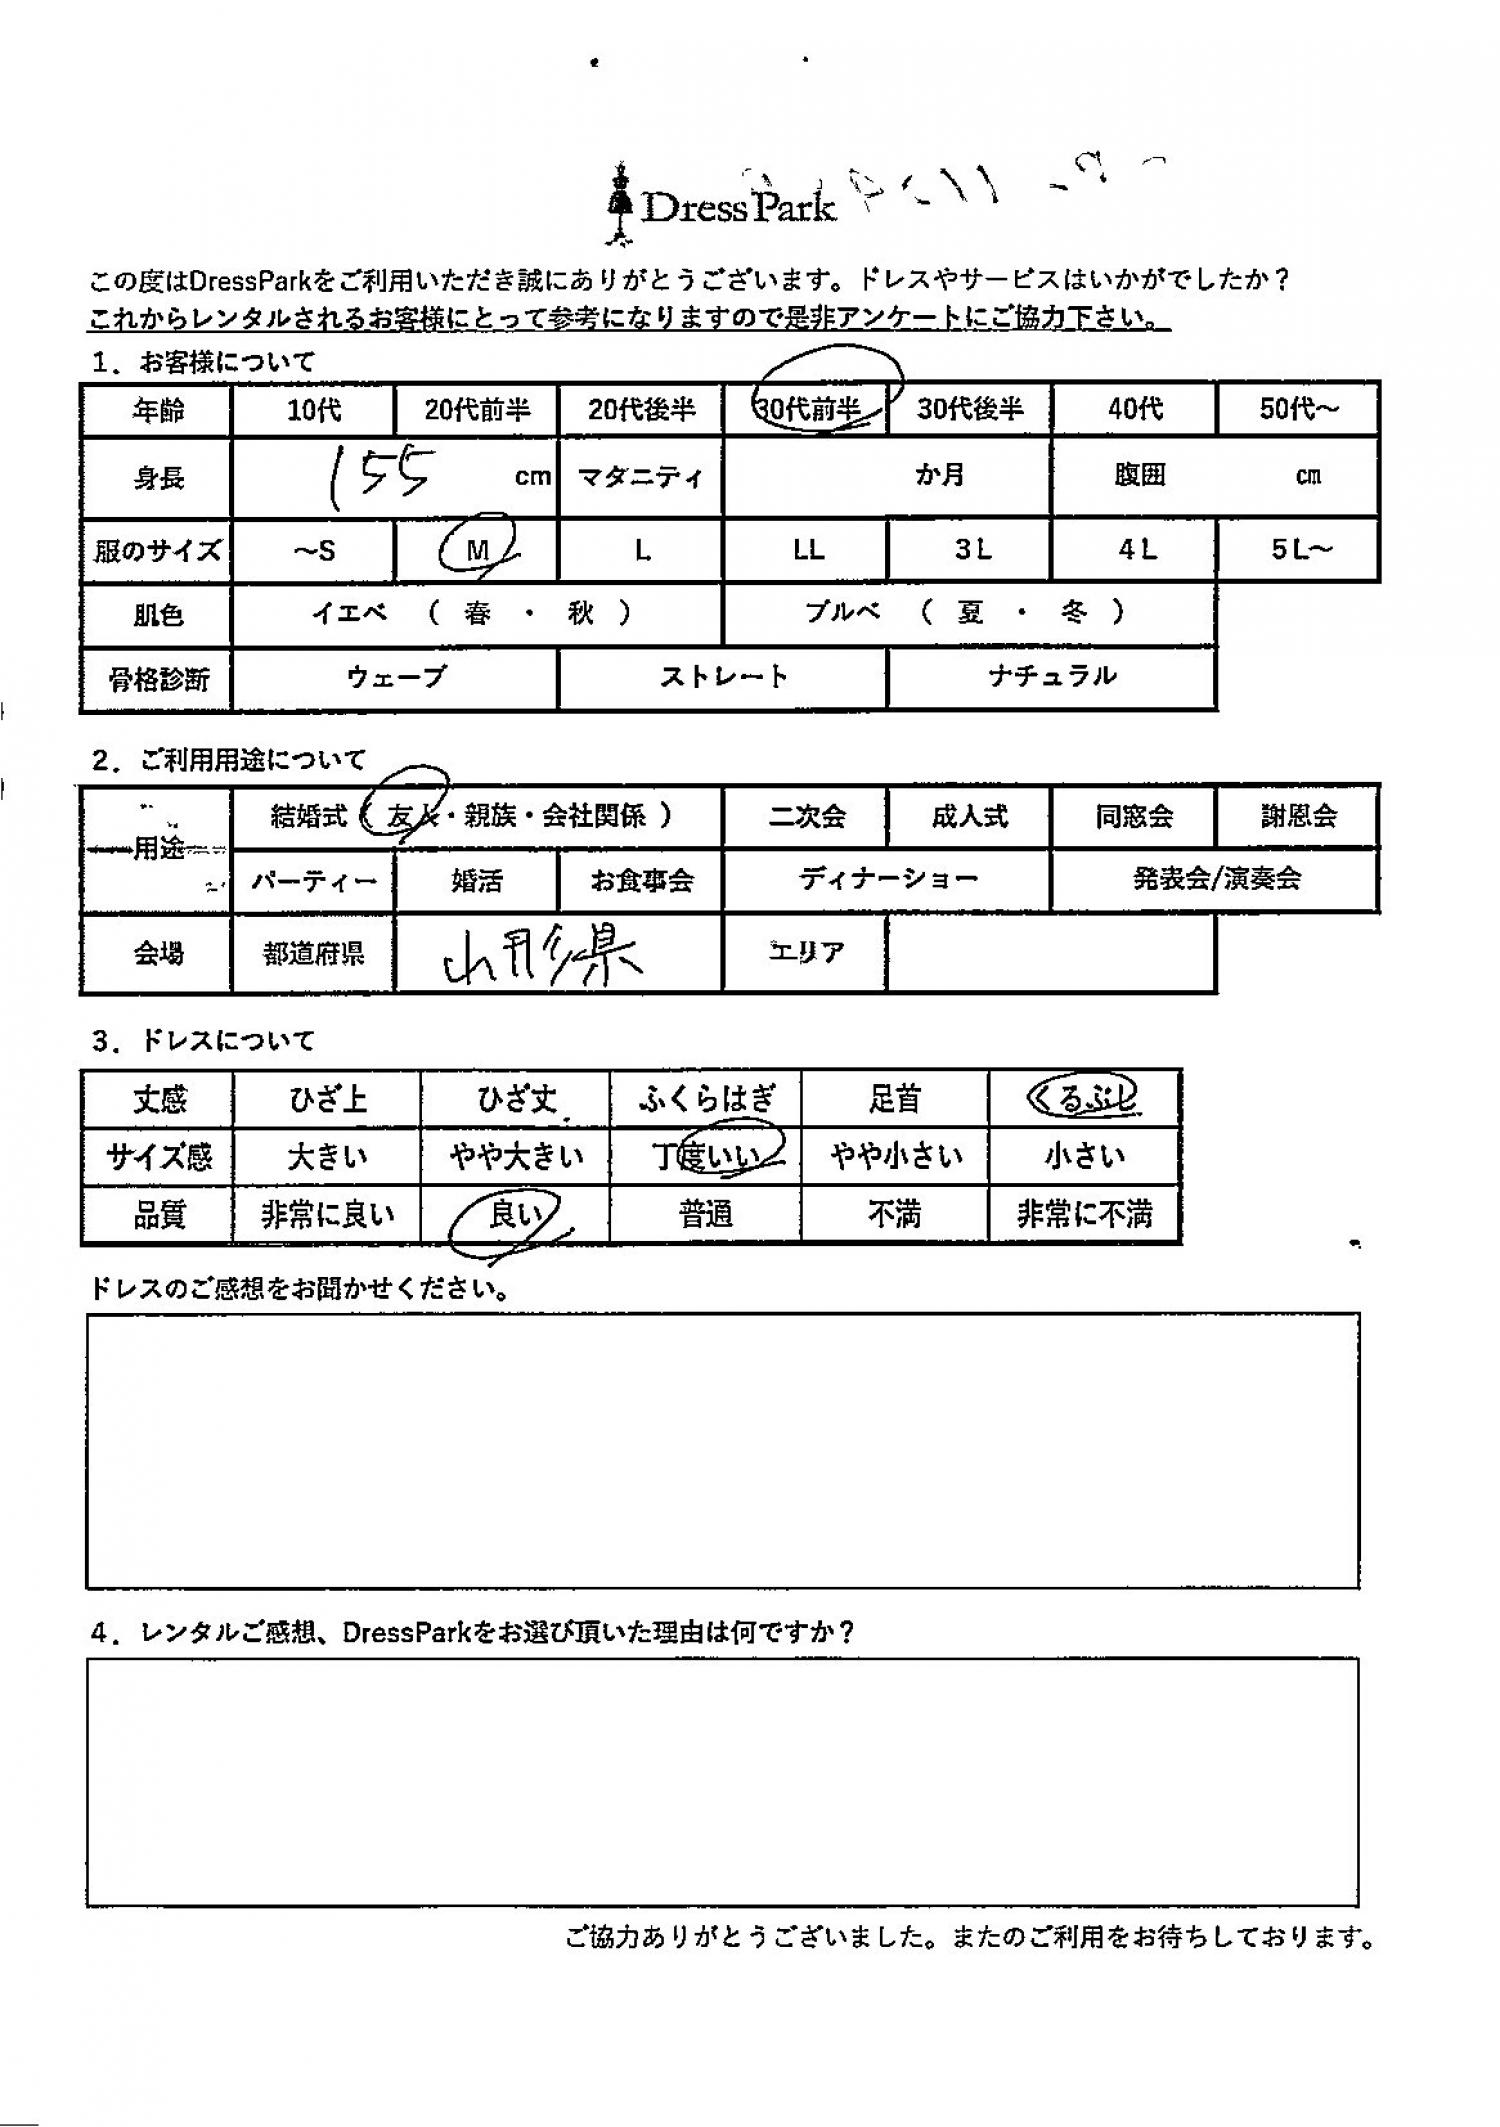 DressPark
この度はDressParkをご利用いただき誠にありがとうございます。ドレスやサービスはいかがでしたか？
これからレンタルされるお客様にとって参考になりますので是非アンケートにご協力下さい。
1．お客様について
年齢 10代 20代前半 20代後半 30代前半 30代後半 40代 50代～
身長 155 cm マタニティ か月 腹囲 cm
服のサイズ ～S M L LL 3L 4L 5L～
肌色 イエベ （ 春 ・ 秋 ） ブルベ （ 夏 ・ 冬 ）
骨格診断 ウェーブ ストレート ナチュラル
2．ご利用用途について
用途 結婚式（ 友人・親族・会社関係 ） 二次会 成人式 同窓会 謝恩会
パーティー 婚活 お食事会 ディナーショー 発表会/演奏会
会場 都道府県 山形県 エリア
3．ドレスについて
丈感 ひざ上 ひざ丈 ふくらはぎ 足首 くるぶし
サイズ感 大きい やや大きい 丁度いい やや小さい 小さい
品質 非常に良い 良い 普通 不満 非常に不満
ドレスのご感想をお聞かせください。
4．レンタルご感想、DressParkをお選び頂いた理由は何ですか？
ご協力ありがとうございました。またのご利用をお待ちしております。